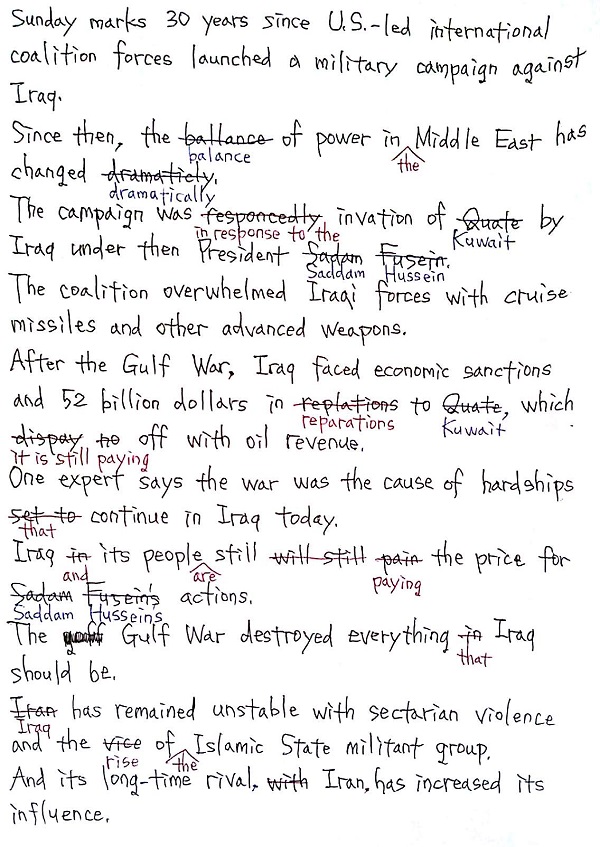 Sunday marks 30 years since U.S.-led international
coalition forces launched a military campaign against
Iraq.
Since then, the ballance of power in Middle East has
balance the
changed dramaticly.
dramatically
The campaign was responcedly invation of Quate by
in response to the Kuwait
Iraq under then President Sadam Fusein.
Saddam Hussein
The coalition overwhelmed Iraqi forces with cruise
missiles and other advanced weapons.
After the Gulf War, Iraq faced economic sanctions
and 52 billion dollars in replations to Quate, which
reparations Kuwait
dispay no off with oil revenue.
it is still paying
One expert says the war was the cause of hardships
set to continue in Iraq today.
that
Iraq in its people still will still pain the price for
and are paying
Sadam Fusein's actions.
Saddam Hussein's
The Gulf War destroyed everything in Iraq
that
should be.
Iran has remained unstable with sectarian violence
Iraq
and the vice of Islamic State militant group.
rise the
And its long-time rival, with Iran, has increased its
influence.